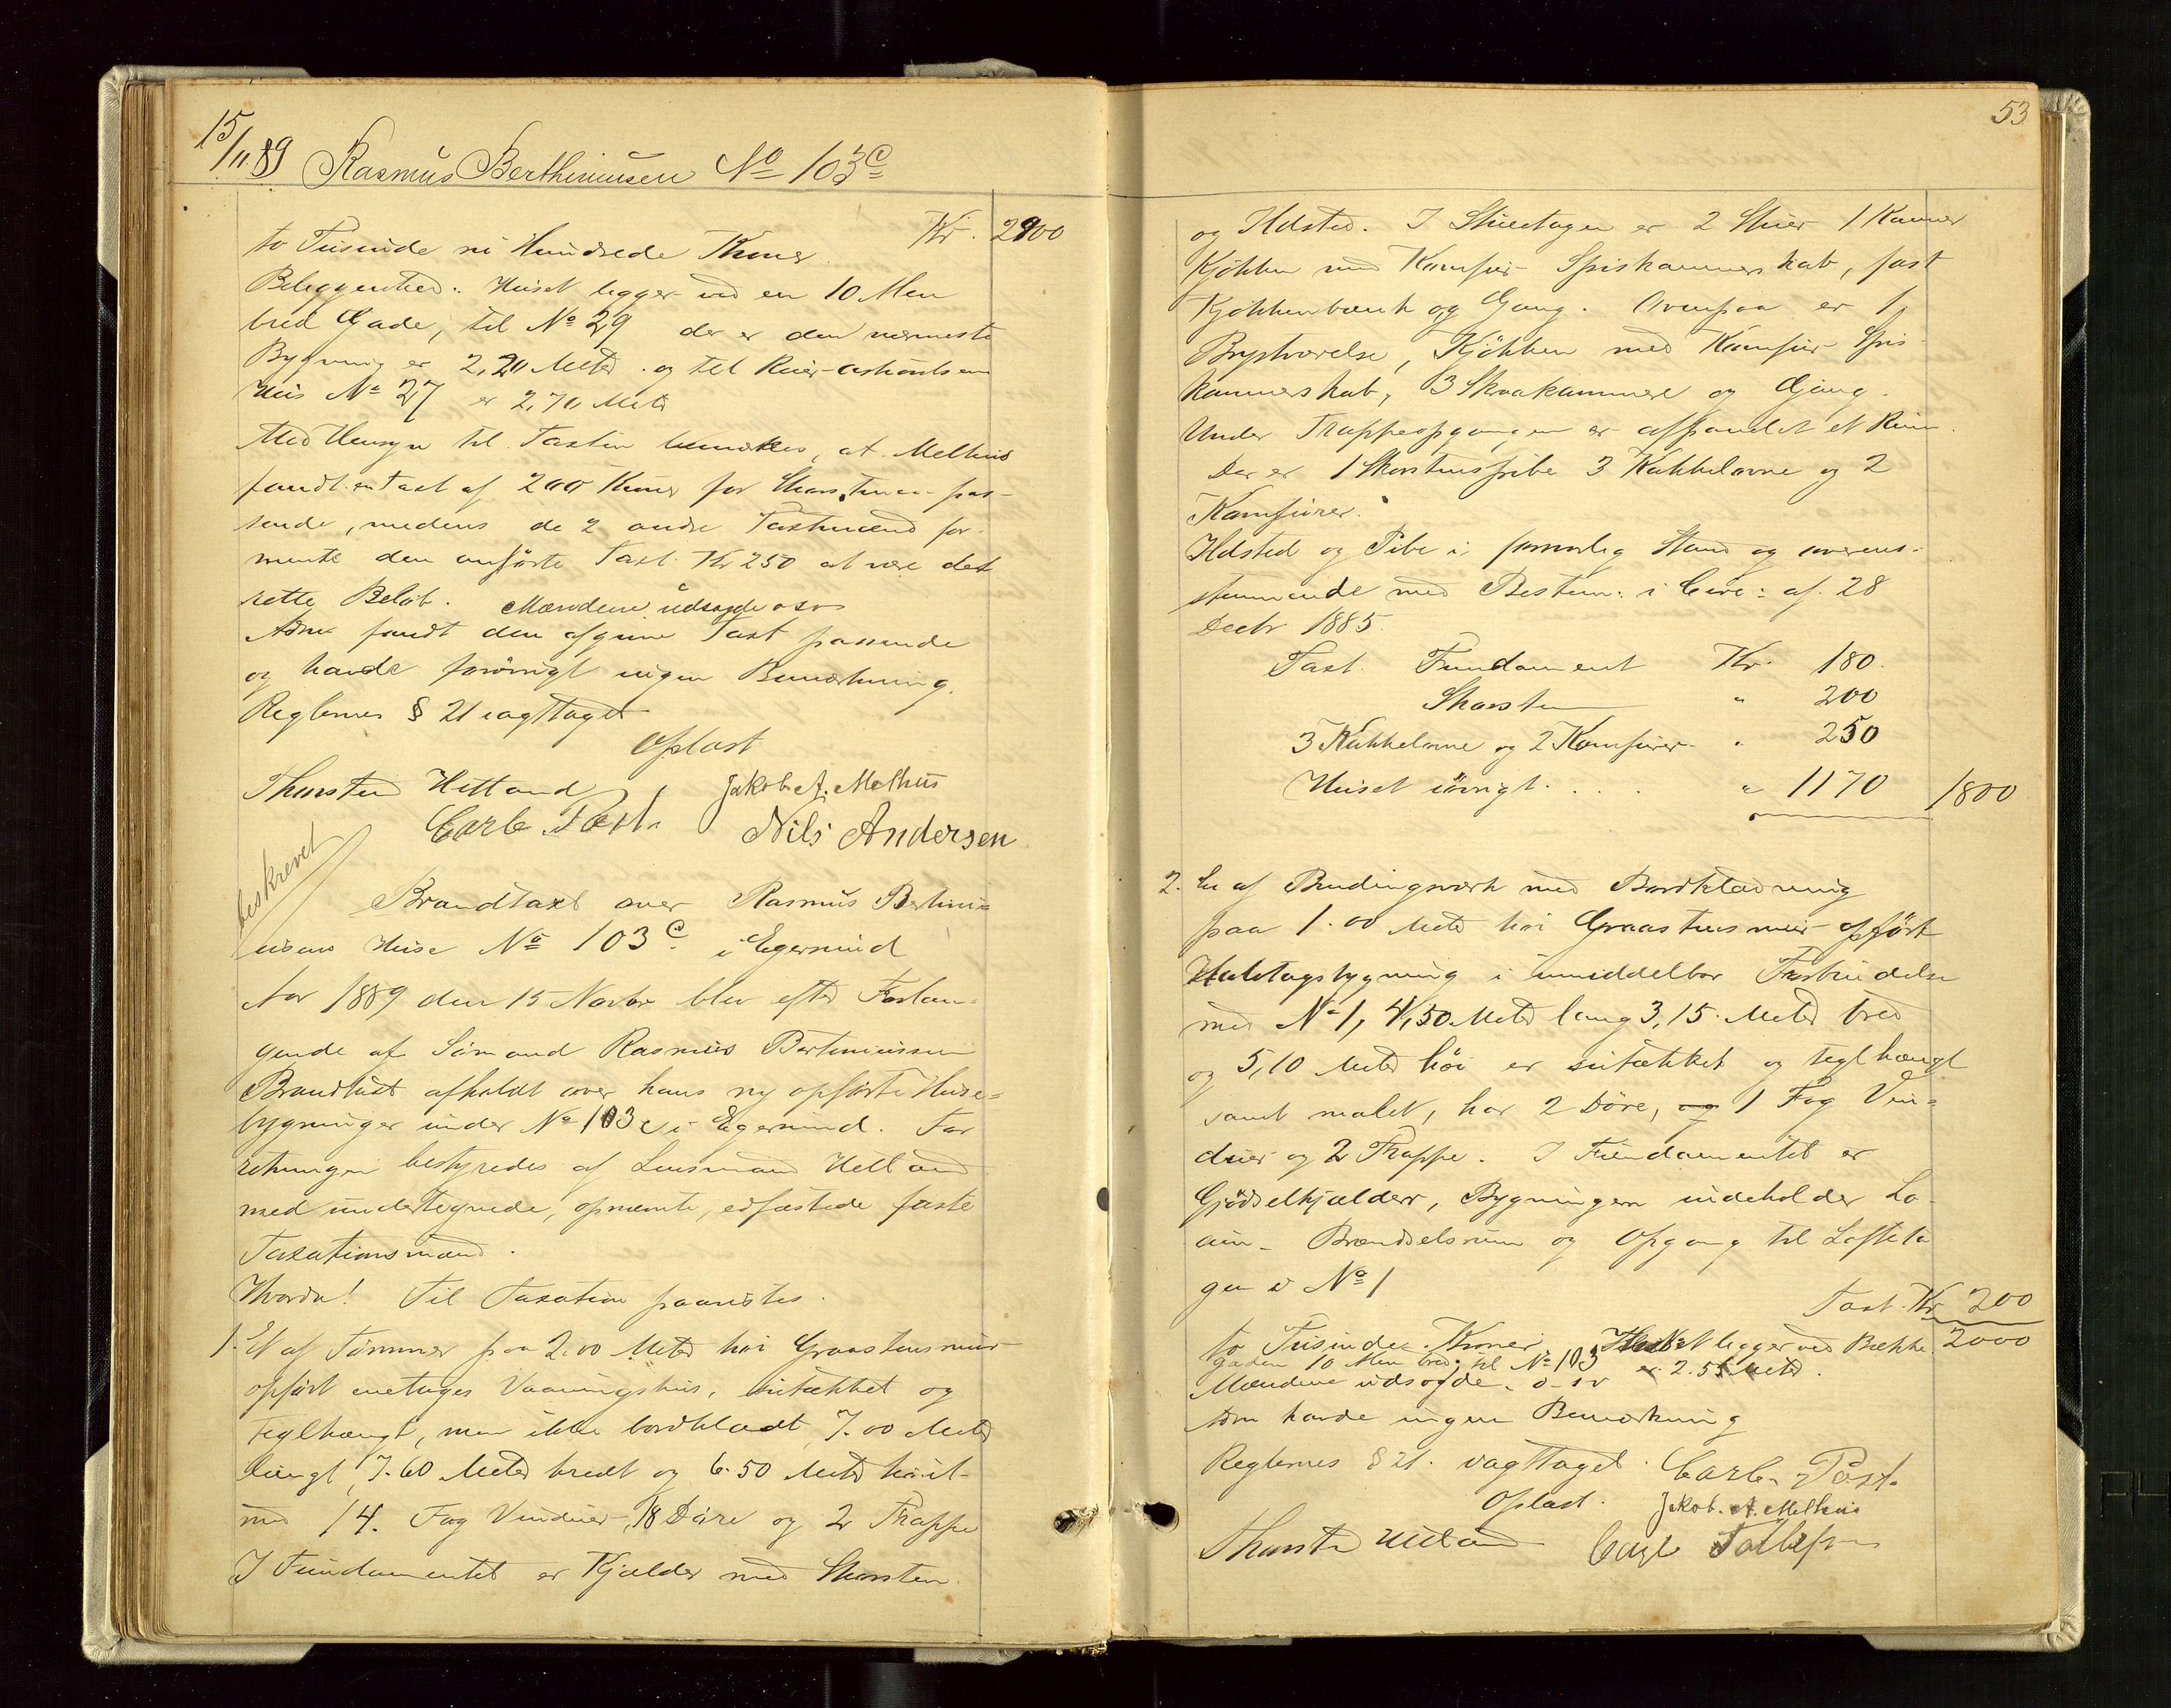 15/11 89 Rasmus Berthiniusen No 103c
Kr. 2900
to Tusinde ni Hundrede Kroner.
Beliggenhed: Huset ligger ved en 10 Alen
bred Gade, til No 29 der er den nærmeste
Bygning er 2,20 Meter og til
Hus No 27 er 2,70 Meter
Med Hensyn til Taxten bemærkes, at Melhus
fandt en Taxt af 200 Kroner for Skorstenen pas-
sende, medens de 2 andre Taxtmænd for-
mente den anførte Taxt Kr 250 at være det
rette Beløb. Mændene udsagde osv
Adm fandt den afgivne Taxt passende
og havde forøvrigt ingen Bemærkning.
Reglernes § 21 iagttaget
Oplæst
Thorsten Hetland Jakob. A. Melhus
Carl C. Pøst. Nils Andersen
beskrevet
Brandtaxt over Rasmus Bertini-
usens Huse No 103c i Egersund
Aar 1889 den 15 Novbr blev efter Forlan-
gende af Sømand Rasmus Bertiniussen
Brandtaxt afholdt over hans ny opførte Huse-
bygninger under No 103c i Egersund. For
retningen bestyredes af Lensmand Hetland
med undertegnede, opnævnte, edfæstede faste
Taxationsmænd.
Hvorda! Til Taxation paavistes.
1. Et af Tømmer paa 2.00 Meter høi Graastensmur
opført enetages Vaaningshus, sutækket og
Teglhængt, men ikke bordklædt, 7.00 Meter
langt, 7.60 Meter bredt og 6.50 Meter høit
med 14. Fag Vinduer, 18 Døre og 2 Trappe
I Fundamentet er Kjælder med Skorsten
53
og Ildsted. I Stuetagen er 2 Stuer 1 Kammer
Kjøkken med Komfur Spiskammerskab, fast
Kjøkkenbænk og Gang. Ovenpaa er 1
Brystværelse, Kjøkken med Komfur Spis
kammerskab, 3 Skraakammere og Gang.
Under Trappeopgangen er afpanelet et Rum.
Der er 1 Skorstenspibe 3 Kakkelovne og 2
Komfurer.
Ildsted og Pibe i forsvarlig Stand og overens-
stemmende med Bestem: i Circ: af 28
Decbr 1885.
Taxt. Fundament Kr. 180.
Skorsten " 200
3 Kakkelovne og 2 Komfurer " 250
Huset iøvrigt . . . . " 1170 1800
2. En af Bindingsværk med Bordklædning
paa 1.00 Meter høi Graastensmur opført
Halvtagsbygning i umiddelbar Forbindelse
med No 1, 4,50 Meter lang 3,15 Meter bred
og 5,10 Meter høi er sutækket og teglhængt
samt malet, har 2 Døre, og 1 Fag Vin-
duer og 2 Trappe. I Fundamentet er
Gjødselkjælder, Bygningen indeholder Lo-
cum - Brændselsrum og Opgang til Lofteta
gen i No 1
Taxt. Kr 200
to Tusinde Kroner. Huset ligger ved Bække 2000
gaden 10 Alen bred, til No 103 er 2.55 Meter.
Mændene udsagde o. s v
Adm havde ingen Bemærkning
Reglernes § 21. iagttaget. Carl C. Pøst.
Oplæst. Jakob. A. Melhus
Thorsten Hetland